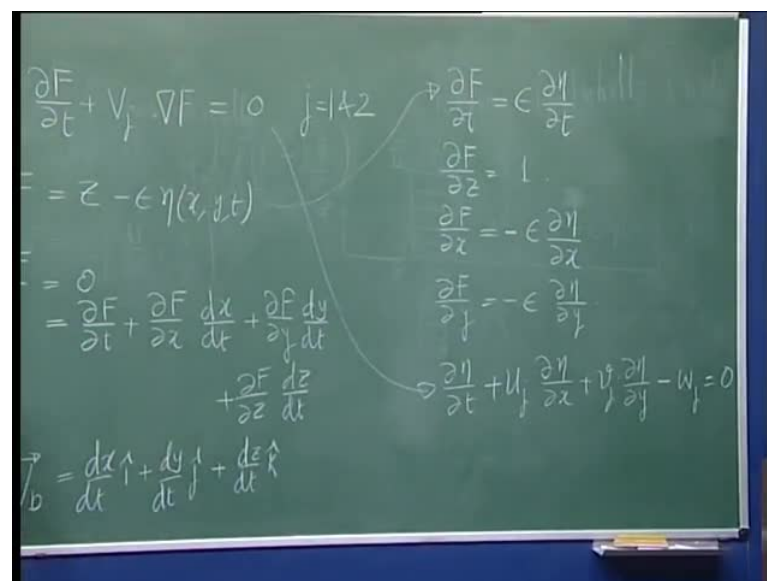 ∂F/∂t + V_j . ∇F = 0 j=1&2
F = z - ϵ η(x, y, t)
= 0
= ∂F/∂t + ∂F/∂x dx/dt + ∂F/∂y dy/dt
+ ∂F/∂z dz/dt
V_b = dx/dt î + dy/dt ĵ + dz/dt k̂
∂F/∂t = ϵ ∂η/∂t
∂F/∂z = 1
∂F/∂x = - ϵ ∂η/∂x
∂F/∂y = - ϵ ∂η/∂y
∂η/∂t + U_j ∂η/∂x + v_j ∂η/∂y - w_j = 0